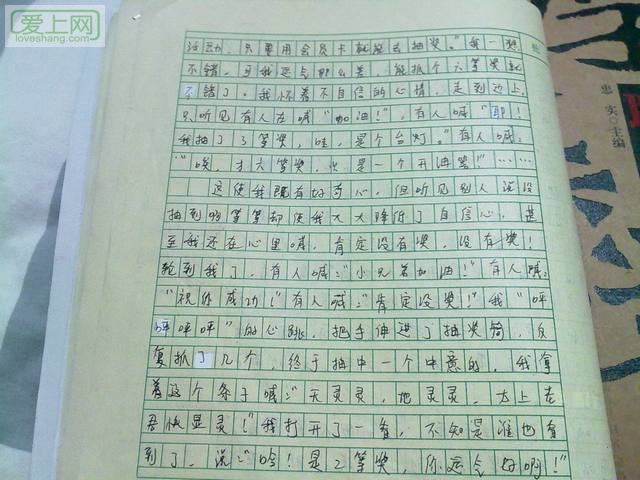 爱上网
loveshang.com
活动，只要用会员卡就能去抽奖。”我一想
不错，可我运气那么差，能抓个六等奖就
不错了。我怀着不自信的心情，走到边上，
只听见有人在喊“加油！”，有人喊“耶！
我抽了3等奖，哇，是个台灯。”有人喊：
“唉，才六等奖，也是一个开油笔！”……
这使我既有好奇心，但听见别人说没
抽到啊等等却使我大大降低了自信心，甚
至我还在心里喊，肯定没有奖，没有奖！
轮到我了，有人喊：“小兄弟加油！”有人喊：
“祝你成功！”有人喊：“肯定没奖！”我“呯
呯呯呯”的心跳，把手伸进了抽奖箱，反
复抓了几个，终于抽中一个中意的，我拿
着这个条子喊：“天灵灵，地灵灵，太上老
吾快显灵！”我打开了一看，不知是谁也看
到了，说：“哈！是2等奖，你运气好啊！”
忠实○主编